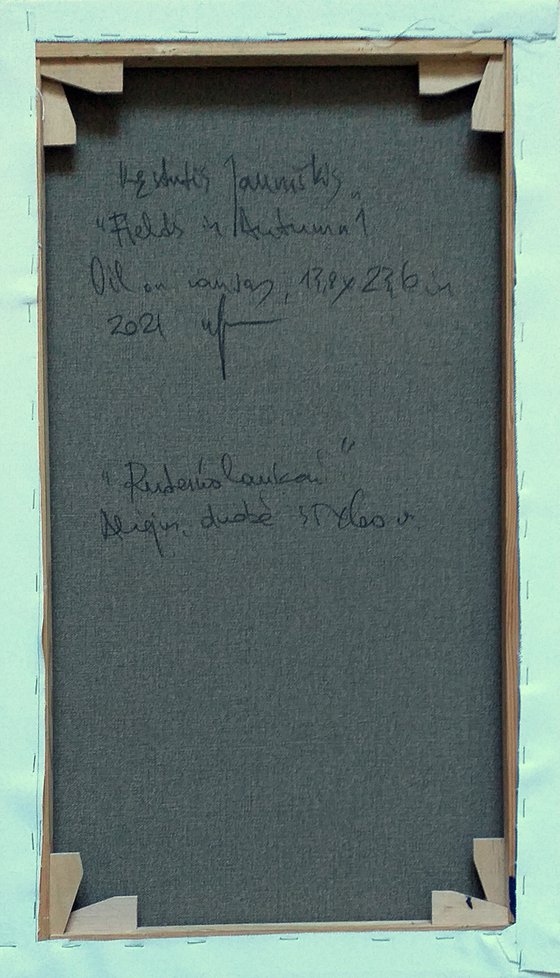 Kęstutis Jauniškis
"Fields in Autumn"
Oil on canvas, 13,8x23,6 in
2021
"Rudenio laukai"
Aliejus, drobė 35x60 cm